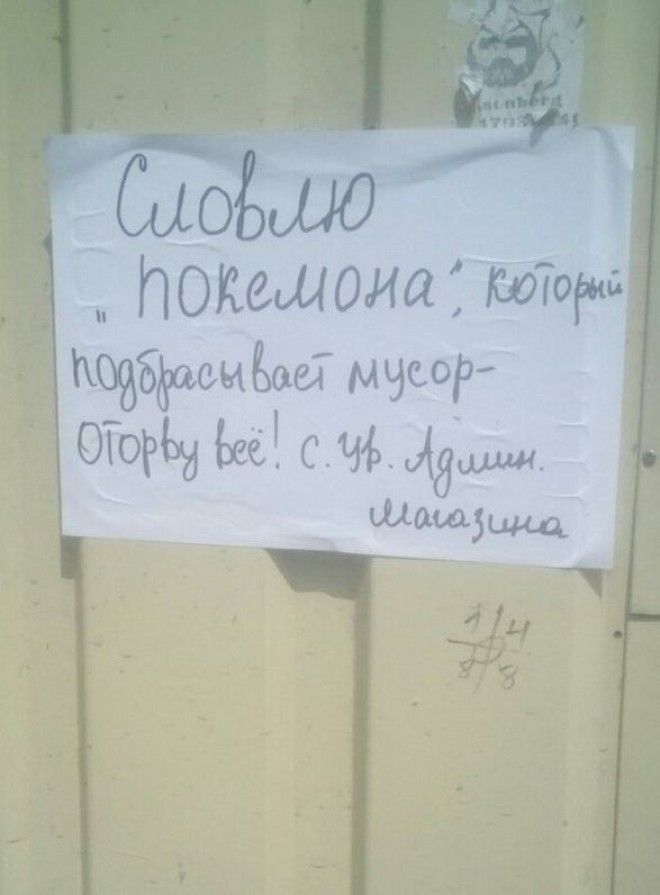 Словлю
„покемона", который
подбрасывает мусор-
оторву всё! с. ув. Админ.
магазина
1 4
8 8